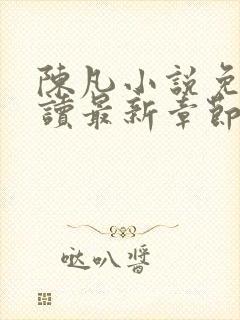 陳凡小說免
讀最新章節
哒叭醬